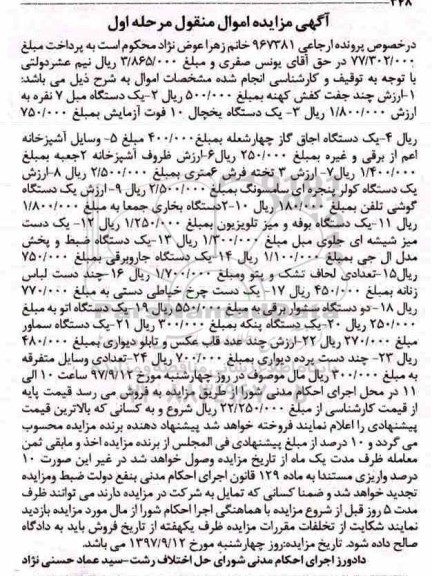 ۲۲۸
آگهی مزایده اموال منقول مرحله اول
درخصوص پرونده ارجاعی ۹۶۷۳۸۱ خانم زهرا عوض نژاد محکوم است به پرداخت مبلغ
۷۷/۳۰۲/۰۰۰ در حق آقای یونس صفری و مبلغ ۳/۸۶۵/۰۰۰ ریال نیم عشردولتی
با توجه به توقیف و کارشناسی انجام شده مشخصات اموال به شرح ذیل می باشد:
۱-ارزش چند جفت کفش کهنه بمبلغ ۵۰۰/۰۰۰ ریال ۲-یک دستگاه مبل ۷ نفره به
ارزش ۱/۸۰۰/۰۰۰ ریال ۳- یک دستگاه یخچال ۱۰ فوت آزمایش بمبلغ ۷۵۰/۰۰۰
ریال ۴-یک دستگاه اجاق گاز چهارشعله بمبلغ ۴۰۰/۰۰۰ مبلغ ۵- وسایل آشپزخانه
اعم از برقی و غیره بمبلغ ۲۵۰/۰۰۰ ریال۶-ارزش ظروف آشپزخانه ۲جعبه بمبلغ
۱/۴۰۰/۰۰۰ ریال۷- ارزش ۲ تخته فرش ۶متری بمبلغ ۲/۵۰۰/۰۰۰ ریال ۸-ارزش
یک دستگاه کولر پنجره ای سامسونگ بمبلغ ۲/۵۰۰/۰۰۰ ریال ۹-ارزش یک دستگاه
گوشی تلفن بمبلغ ۱۸۰/۰۰۰ ریال ۱۰-۲دستگاه بخاری جمعا به مبلغ ۱/۸۰۰/۰۰۰
ریال ۱۱-یک دستگاه بوفه و میز تلویزیون بمبلغ ۱/۲۵۰/۰۰۰ ریال ۱۲- یک دست
میز شیشه ای جلوی مبل مبلغ ۱/۳۰۰/۰۰۰ ریال ۱۳-یک دستگاه ضبط و پخش
مدل ال جی بمبلغ ۱/۱۰۰/۰۰۰ ریال ۱۴-یک دستگاه جاروبرقی بمبلغ ۷۵۰/۰۰۰
ریال۱۵-تعدادی لحاف تشک و پتو ومبلغ ۱/۷۰۰/۰۰۰ ریال ۱۶-چند دست لباس
زنانه بمبلغ ۴۵۰/۰۰۰ ریال ۱۷- یک دست چرخ خیاطی دستی به مبلغ ۷۷۰/۰۰۰
ریال ۱۸-دو دستگاه سشوار برقی به مبلغ ۵۵۰/۰۰۰ ریال ۱۹-یک دستگاه اتو به مبلغ
۲۵۰/۰۰۰ ریال ۲۰-یک دستگاه پنکه بمبلغ ۳۰۰/۰۰۰ ریال ۲۱-یک دستگاه سماور
مبلغ ۲۷۰/۰۰۰ ریال ۲۲-ارزش چند عدد قاب عکس و تابلو دیواری بمبلغ ۴۸۰/۰۰۰
ریال ۲۳- چند دست پرده دیواری بمبلغ ۷۰۰/۰۰۰ ریال ۲۴-تعدادی وسایل متفرقه
به مبلغ ۳۰۰/۰۰۰ ریال مال موصوف در روز چهارشنبه مورخ ۹۷/۹/۱۲ ساعت ۱۰ الی
۱۱ در محل اجرای احکام مدنی شورا از طریق مزایده به فروش می رسد قیمت پایه
از قیمت کارشناسی از مبلغ ۲۲/۲۵۰/۰۰۰ ریال شروع و به کسانی که بالاترین قیمت
پیشنهادی را اعلام نمایند فروخته خواهد شد پیشنهاد دهنده برنده مزایده محسوب
می گردد و ۱۰ درصد از مبلغ پیشنهادی فی المجلس از برنده مزایده اخذ و مابقی ثمن
معامله ظرف مدت یک ماه از تاریخ مزایده وصول خواهد شد در غیر این صورت ۱۰
درصد واریزی مستندا به ماده ۱۲۹ قانون اجرای احکام مدنی بنفع دولت ضبط ومزایده
تجدید خواهد شد و ضمنا کسانی که تمایل به شرکت در مزایده دارند می توانند ظرف
مدت ۵ روز قبل از شروع مزایده با هماهنگی اجرا احکام شورا از مال مورد مزایده بازدید
نمایند شکایت از تخلفات مقررات مزایده ظرف یکهفته از تاریخ فروش باید به دادگاه
صالح داده شود. تاریخ مزایده:روز چهارشنبه مورخ ۱۳۹۷/۹/۱۲ می باشد.
دادورز اجرای احکام مدنی شورای حل اختلاف رشت-سید عماد حسنی نژاد